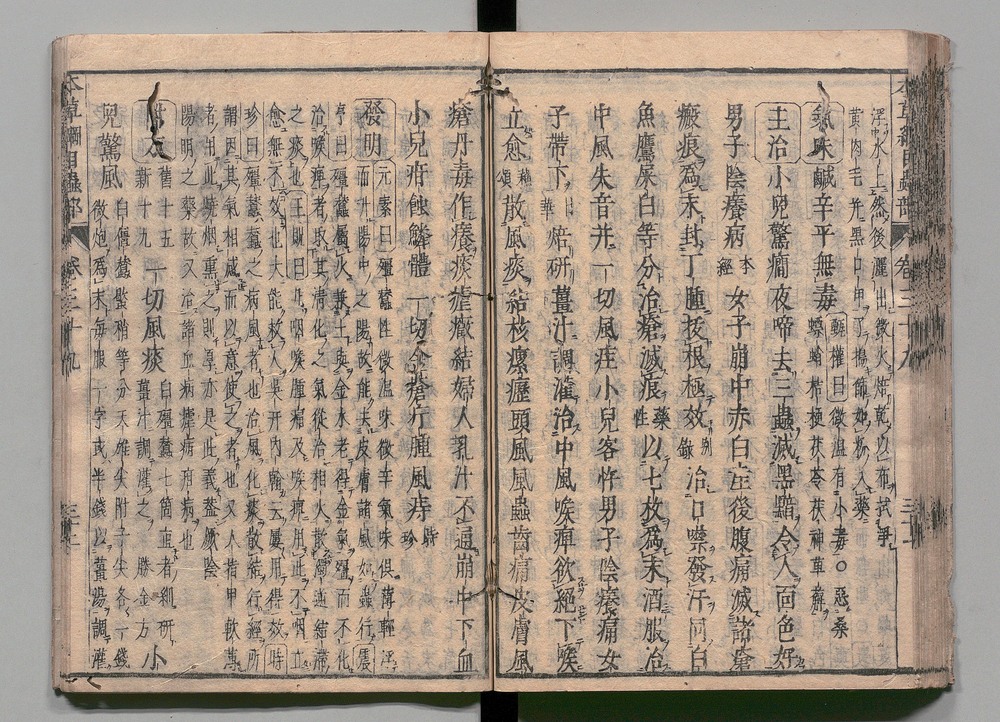 本草綱目蟲部 卷三十九
浮水上然後漉出微火焙乾以布拭淨
黃肉毛并黑口甲了搗篩如粉入藥
氣味鹹辛平無毒 甄權曰微溫有小毒○惡桑
螵蛸桔梗茯苓茯神萆薢
主治小兒驚癇夜啼去三蟲滅黑䵟令人面色好
男子陰瘍病 本經 女子崩中赤白產後腹痛滅諸瘡
瘢痕爲末封丁腫拔根極效 別錄 治口噤發汗同白
魚鷹屎白等分治瘡滅痕 藥性 以七枚爲末酒服治
中風失音并一切風疰小兒客忤男子陰瘍痛女
子帶下 日華 焙研薑汁調灌治中風喉痹欲絕下喉
立愈 蘇頌 散風痰結核瘰癧頭風風蟲齒痛皮膚風
瘡丹毒作癢痰瘧癥結婦人乳汁不通崩中下血
小兒疳蝕鱗體一切金瘡疔腫風痔 時珍
發明 元素曰殭蠶性微溫味微辛氣味俱薄輕浮
而升陽中之陽故能去皮膚諸風如蟲行 震
亨曰殭蠶屬火兼土與金水老得金氣殭而不化
治喉痹者取其清化之氣從治相火散濁逆結滯
之痰也 王貺曰
愈無不效也大能救人吳开內翰云屢用得效 時
珍曰殭蠶之病風者也治風化痰散結行經所
謂因其氣相感而以意使之者也又人指甲軟薄
者用此燒烟熏之則厚亦是此義蓋厥陰
陽明之藥故又治諸血病瘧病疳病也
附方 舊十五新十九 一切風痰 白殭蠶七箇直者細研薑汁調灌之 勝金方 小
兒驚風 白殭蠶蠍稍等分天雄尖附子尖各一錢
微炮爲末每服一字或半錢以薑湯調灌
本草綱目蟲部 卷三十九